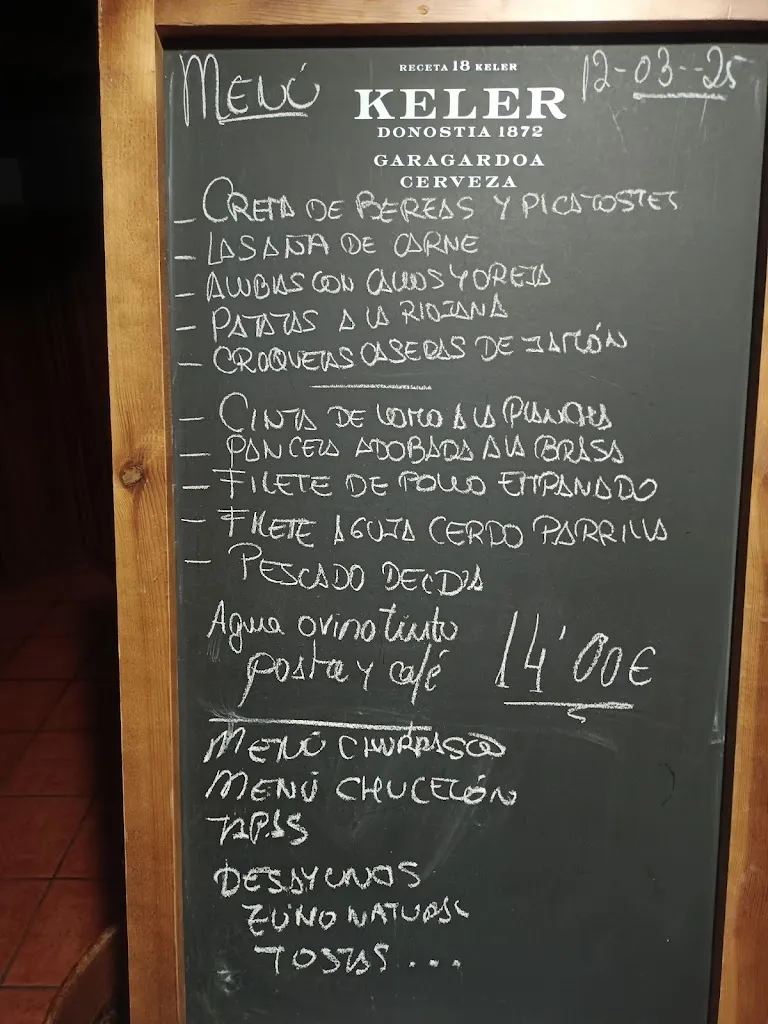 MENÚ
RECETA 18 KELER
KELER
DONOSTIA 1872
GARAGARDOA
CERVEZA
12-03-25
- CREMA DE BERZAS Y PICATOSTES
- LASAÑA DE CARNE
- ALUBIAS CON CALLOS Y OREJA
- PATATAS A LA RIOJANA
- CROQUETAS CASERAS DE JAMÓN
- CINTA DE LOMO A LA PLANCHA
- PANCETA ADOBADA A LA BRASA
- FILETE DE POLLO EMPANADO
- FILETE AGUJA CERDO PARRILLA
- PESCADO DEL DIA
Agua o vino tinto
postre y café
14'00€
MENÚ CHURRASCO
MENÚ CHULETÓN
TAPAS
DESAYUNOS
ZUMO NATURAL
TOSTAS...